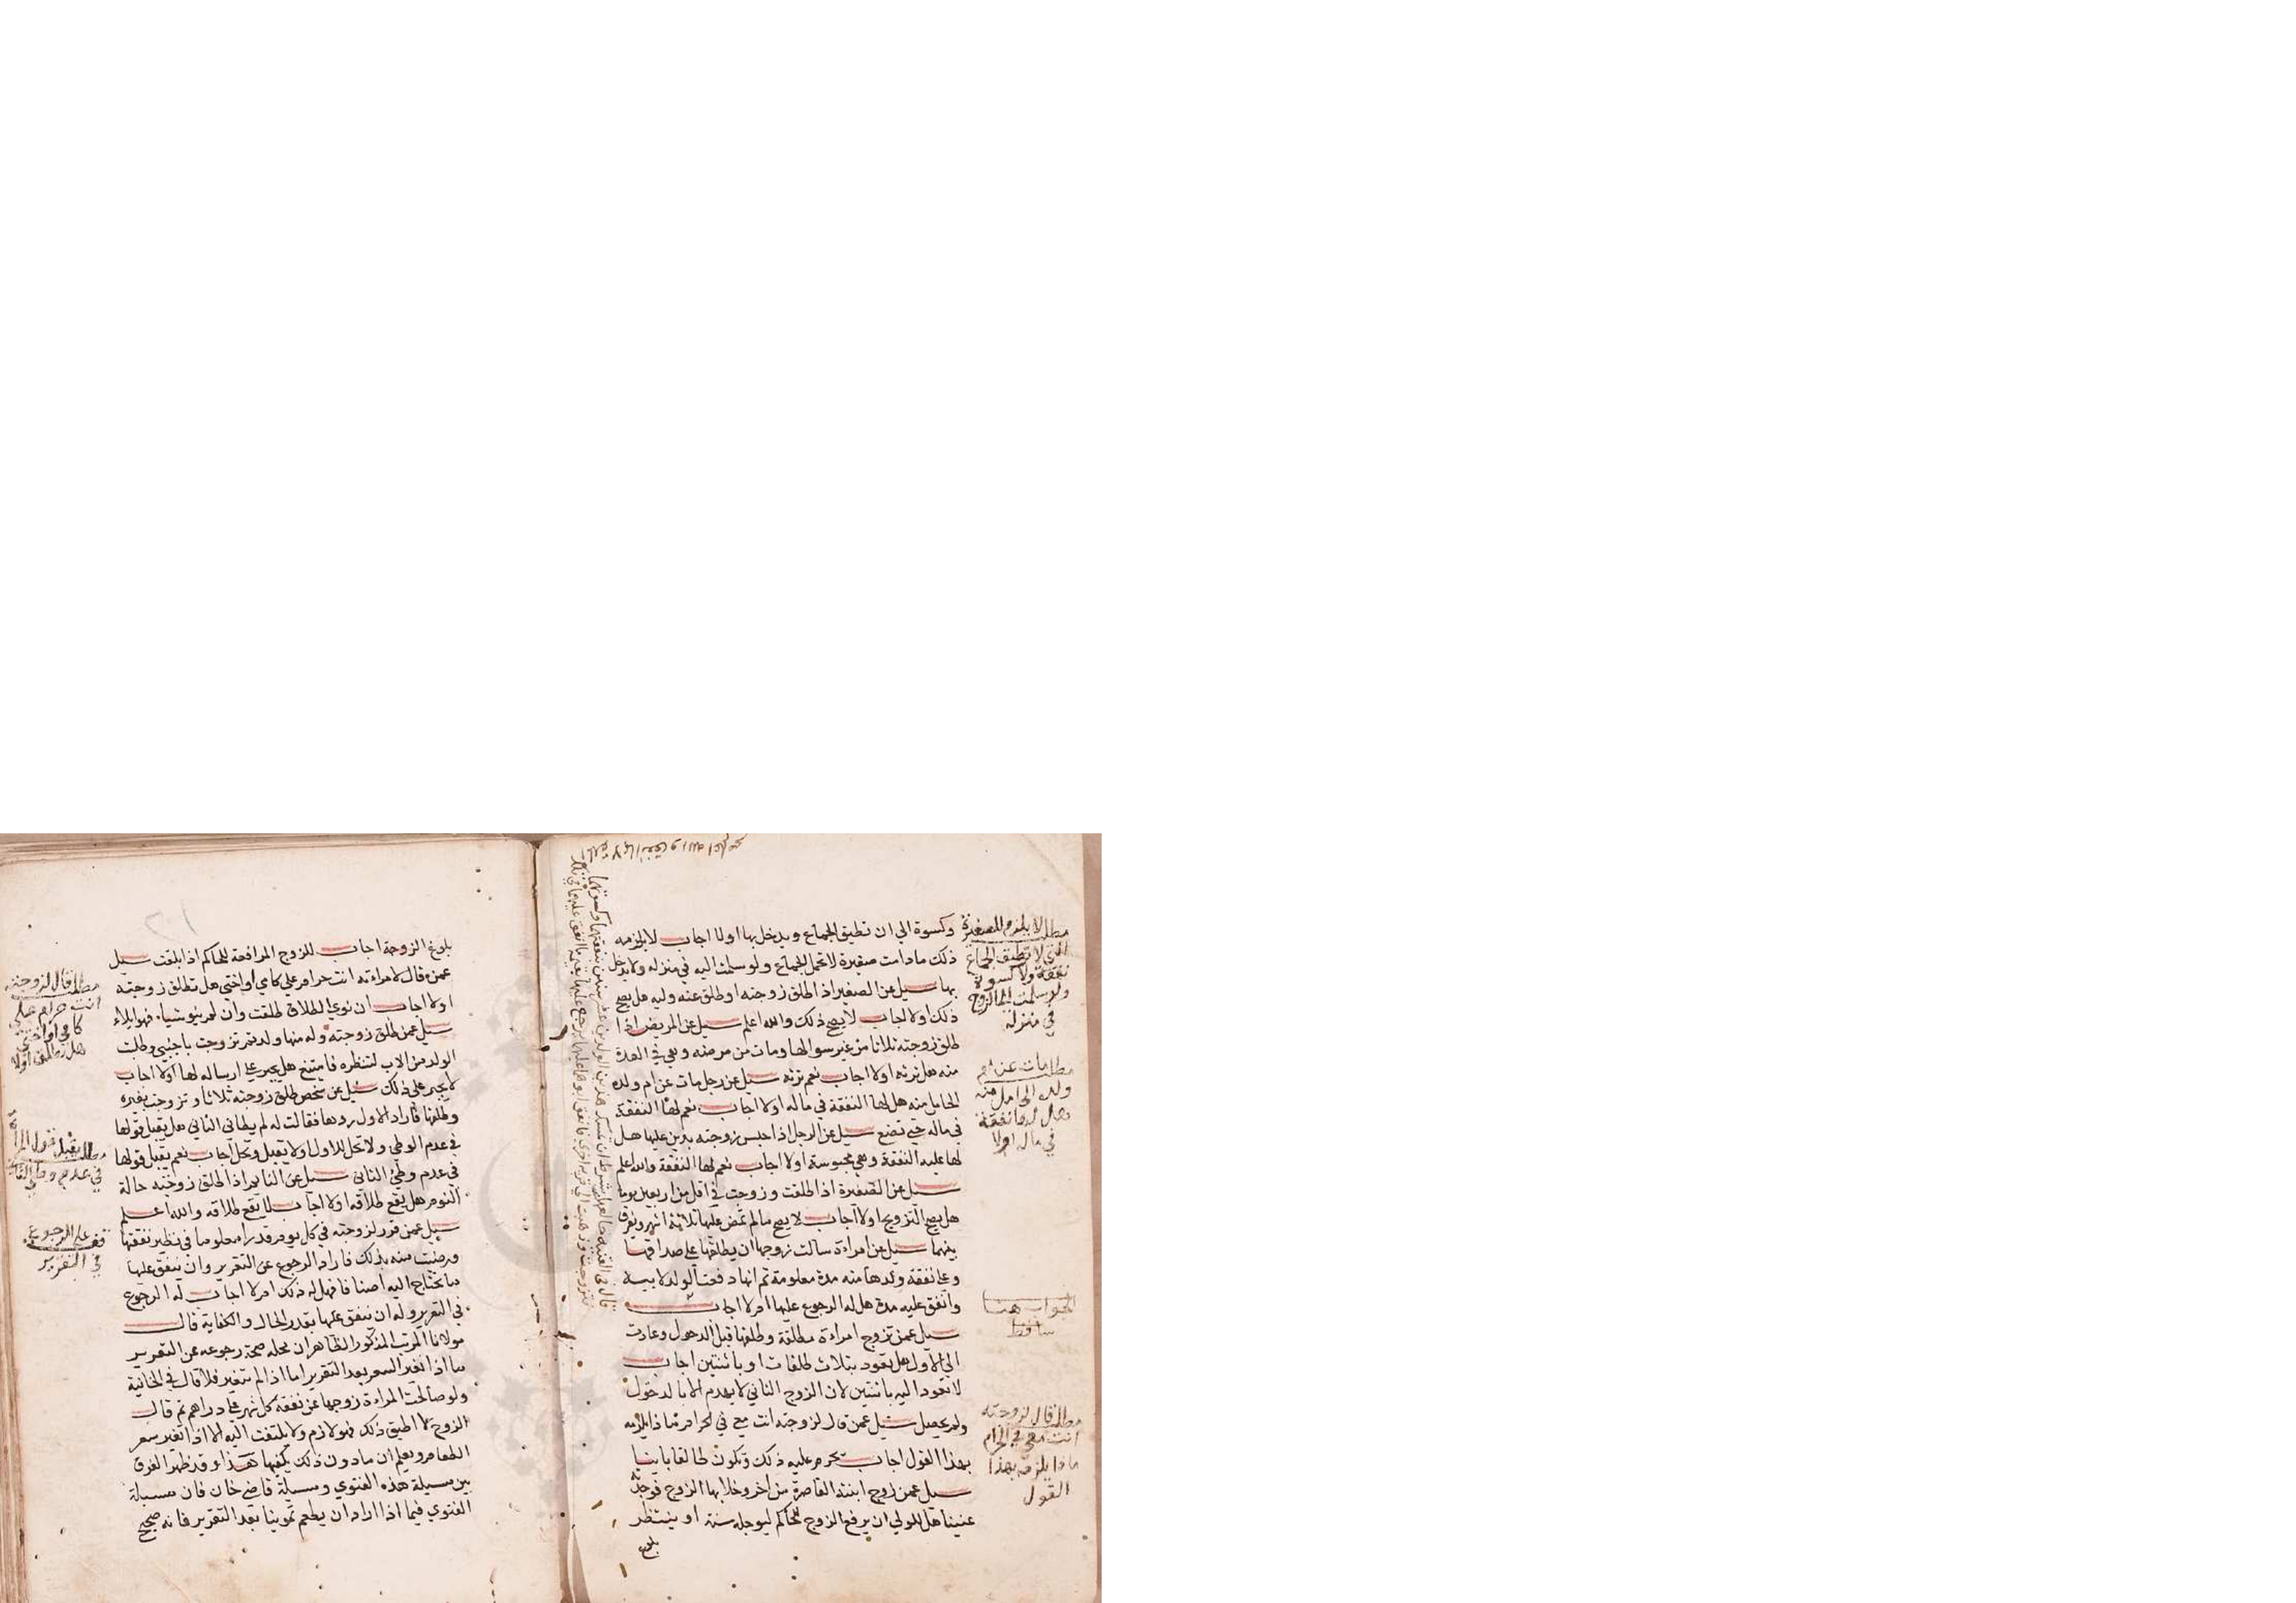 وكسوة الي ان تطيق الجماع ويدخل بها اولا اجاب لا يلزمه
ذلك مادامت صغيرة لا تحمل الجماع ولو سلمت اليه في منزله ولا يدخل
بها سيل عن الصغير اذا طلق زوجته او طلق عنه وليه هل يصح
ذلك اولا اجاب لا يصح ذلك والله اعلم سيل عن المريض اذا
طلق زوجته ثلاثا من غير سوالها ومات من مرضه وهي في العدة
منه هل ترثه اولا اجاب نعم ترثه سيل عن رجل مات عن ام ولده
الحامل منه هل لها النفقة في ماله اولا اجاب نعم لها النفقة
في ماله حتي تضع سيل عن الرجل اذا حبس زوجته بدين عليها هل
لها عليه النفقة وهي محبوسة اولا اجاب نعم لها النفقة والله اعلم
سيل عن الصغيرة اذا طلقت وزوجت في اقل من اربعين يوما
هل يصح التزويج اولا اجاب لا يصح مالم تمض عليها ثلاثة اشهر ويفرق
بينهما سيل عن امراة سالت زوجها ان يطلقها على صداقها
وعلى نفقة ولدها منه مدة معلومة ثم انها دفعت الولد لابيه
وانفق عليه مدة هل له الرجوع عليها ام لا اجاب
سيل عمن تزوج امراة مطلقة وطلقها قبل الدخول وعادت
الي الاول هل يعود بثلاث طلقات او باثنتين اجاب
لا تعود اليه باثنتين لان الزوج الثاني لا يهدم الا بالدخول
ولم يحصل سيل عمن قال لزوجته انت معي في الحرام ماذا يلزمه
بهذا القول اجاب يحرم عليه ذلك وتكون طالقا باينا
سيل عمن زوج ابنته القاصرة من اخر وخلا بها الزوج فوجدته
عنينا هل للولي ان يرفع الزوج للحاكم ليوجله سنة او ينتظر
بلوغ
مطلب لا يلزم للصغيرة
التي لا تطيق الجماع
نفقة ولا كسوة
ولو سلمت الي الزوج
في منزله
مطلب مات عن ام
ولده الحامل منه
هل لها نفقة
في ماله اولا
الجواب هنا
ساقط
مطلب قال لزوجته
انت معي في الحرام
ماذا يلزمه بهذا
القول
بلوغ الزوجة اجاب للزوج المرافعة للحاكم اذا بلغت سيل
عمن قال لامراته انت حرام علي كامي او اختي هل تطلق زوجته
اولا اجاب ان نوي الطلاق طلقت وان لم ينو شيا فهو ايلاء
سيل عمن طلق زوجته وله منها ولد ثم تزوجت باجنبي وطلبت
الولد من الاب لتنظره فامتنع هل يجبر على ارساله لها اولا اجاب
لا يجبر على ذلك سيل عن شخص طلق زوجته ثلاثا وتزوجت بغيره
وطلقها فاراد الاول ردها فقالت له لم يطاني الثاني هل يقبل قولها
في عدم الوطي ولا تحل للاول اولا يقبل وتحل اجاب نعم يقبل قولها
في عدم وطي الثاني سيل عن النايم اذا طلق زوجته حالة
النوم هل يقع طلاقه اولا اجاب لا يقع طلاقه والله اعلم
سيل عمن قرر لزوجته في كل يوم قدرا معلوما في نظير نفقتها
ورضيت منه بذلك فاراد الرجوع عن التقرير وان ينفق عليها
ما تحتاج اليه اصنافا فهل له ذلك ام لا اجاب له الرجوع
في التقرير وله ان ينفق عليها بقدر الحال والكفاية قال
مولانا المرتب المذكور الظاهر ان محله صحة رجوعه عن التقرير
ما اذا تغير السعر بعد التقرير اما اذا لم يتغير فلا قال في الخانية
ولو صالحت المراة زوجها عن نفقة كل شهر على دراهم ثم قال
الزوج لا اطيق ذلك فهو لازم ولا يلتفت اليه الا اذا تغير سعر
الطعام ويعلم ان مادون ذلك يكفيها هذا وقد ظهر الفرق
بين مسيلة هذه الفتوي ومسيلة قاضي خان فان مسيلة
الفتوي فيما اذا اراد ان يطعم تموينا بعد التقرير فانه صحيح
مطلب قال لزوجته
انت حرام علي
كامي او اختي
هل تطلق اولا
مطلب يقبل قول المراة
في عدم وطي الثاني
قف على الرجوع
في التقرير